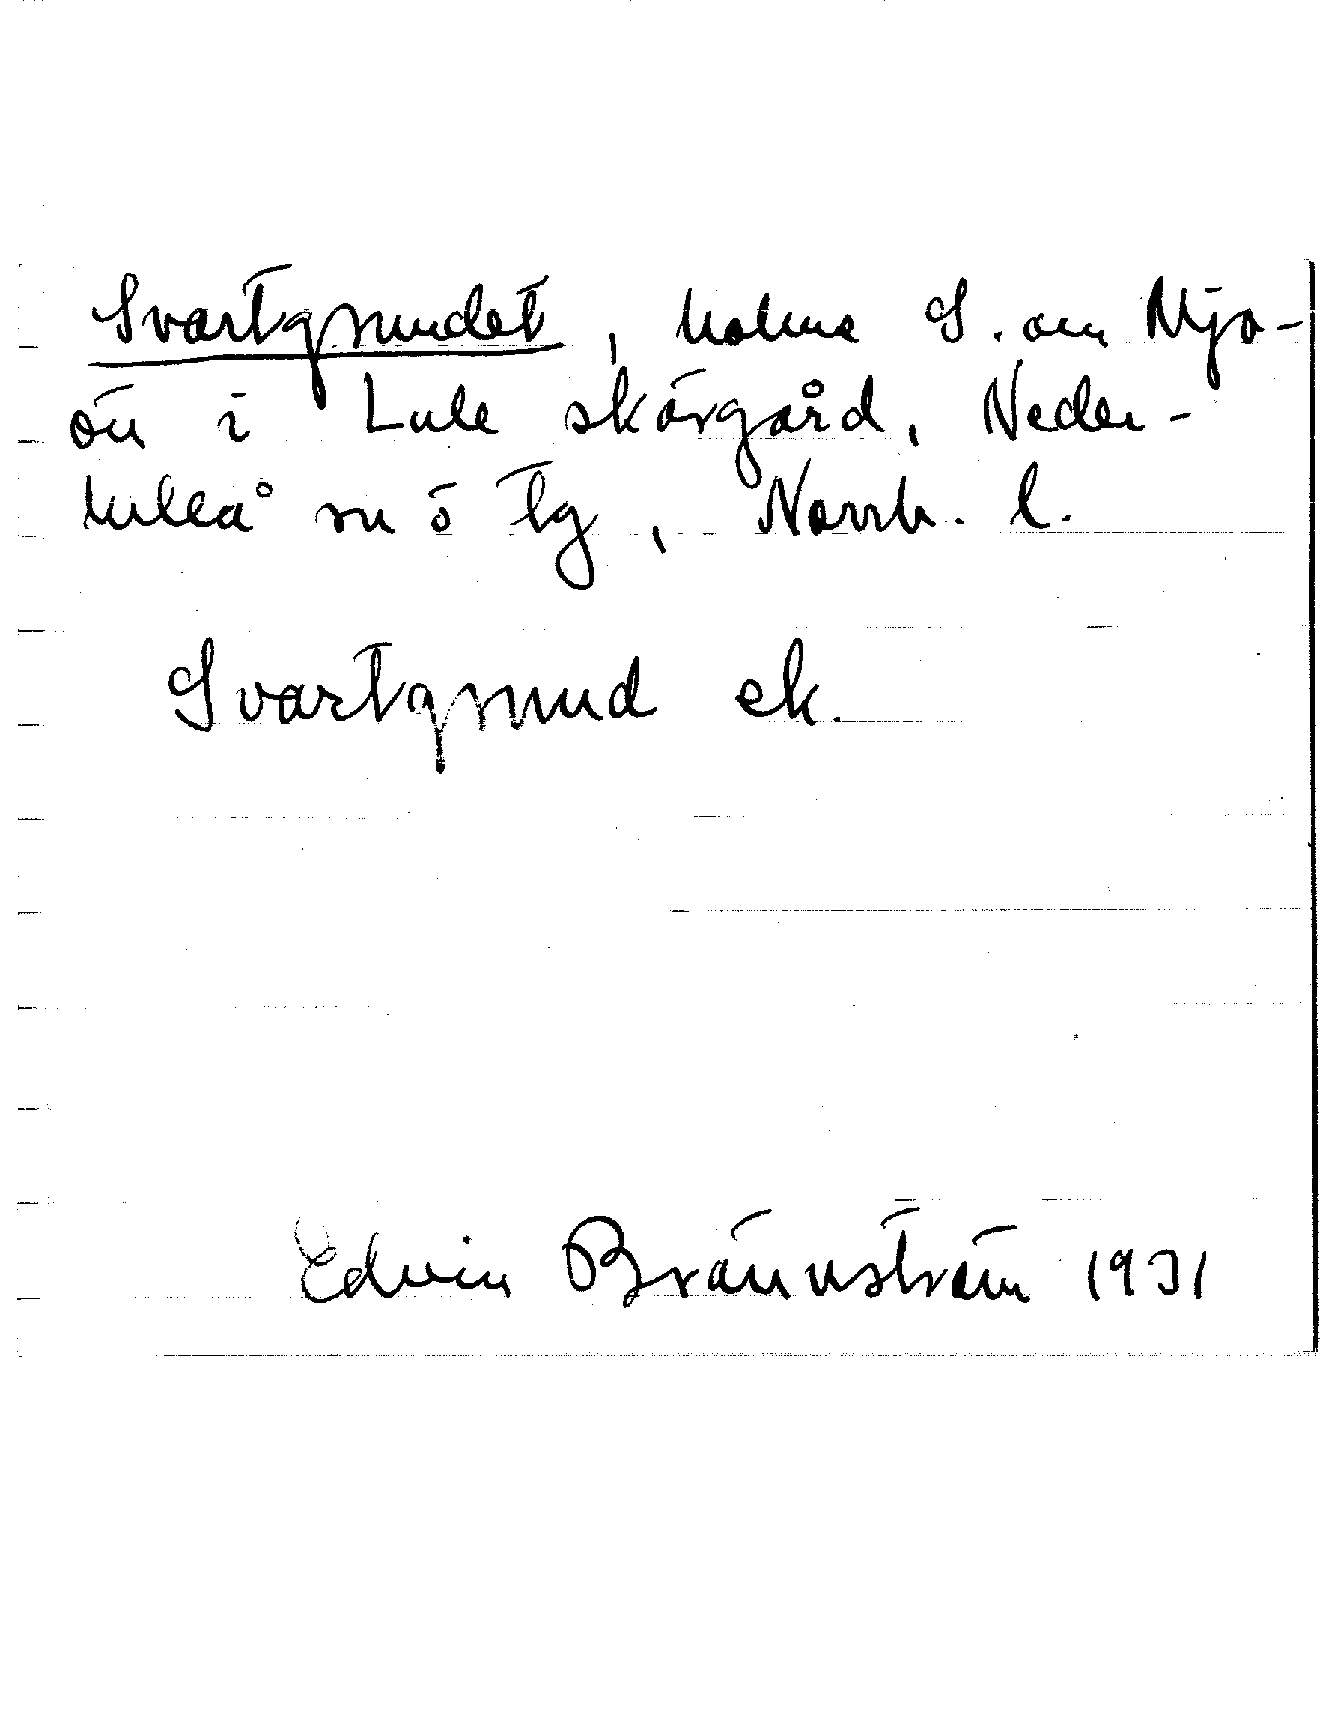 Svartgrundet, holme S. om Mjo-
ön i Lule skärgård, Neder-
luleå sn ö tg, Norrb. l.
Svartgrund ek.
Edvin Brännström 1931